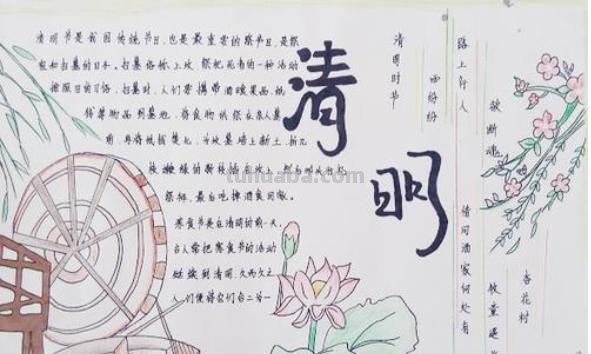 清明节是我国传统节日,也是最重要的祭节日,是祭
祖和扫墓的日子。扫墓俗称上坟,祭祀死者的一种活动
按照旧的习俗,扫墓时,人们要携带酒食果品,纸
钱等物品到墓地,将食物供祭在亲人墓
前,再将纸钱焚化,为坟墓培上新土,折几
枝嫩绿的新枝插在坟上,然后叩头行礼
祭拜,最后吃掉酒食回家。
寒食节是在清明的前一天,
古人常把寒食节的活动
延续到清明,久而久之
人们便将它们合二为一
清明
清明时节
雨纷纷
路上行人
欲断魂
借问酒家何处有
牧童遥
杏花村
tuhuaba.com